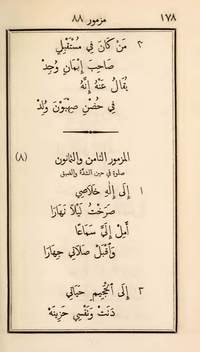 ١٧٨ مزمور ٨٨
٢ مَنْ كَانَ فِي مُسْتَقْبِلِي
صَاحِبَ إِيْمَانٍ وُجِدْ
يُقَالُ عَنْهُ إِنَّهُ
فِي حُضْنِ صِهْيَوْنَ وُلِدْ
المزمور الثامن والثمانون (٨)
صلوة في حين الشدّة والضيق
١ إِلَى إِلٰهِ خَلَاصِي
صَرَخْتُ لَيْلًا نَهَارَا
أَمِلْ إِلَيَّ سَمَاعًا
وَاقْبَلْ صَلَاتِي جِهَارَا
٢ إِلَى الْجَحِيمِ حَيَاتِي
دَنَتْ وَنَفْسِي حَزِينَهْ